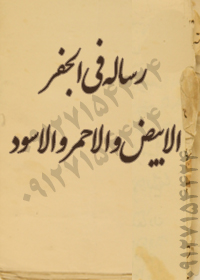 رساله فی الجفر
الابیض والاحمر والاسود
۰۹۱۲۷۱۵۴۴۲۴
۰۹۱۲۷۱۵۴۴۲۴